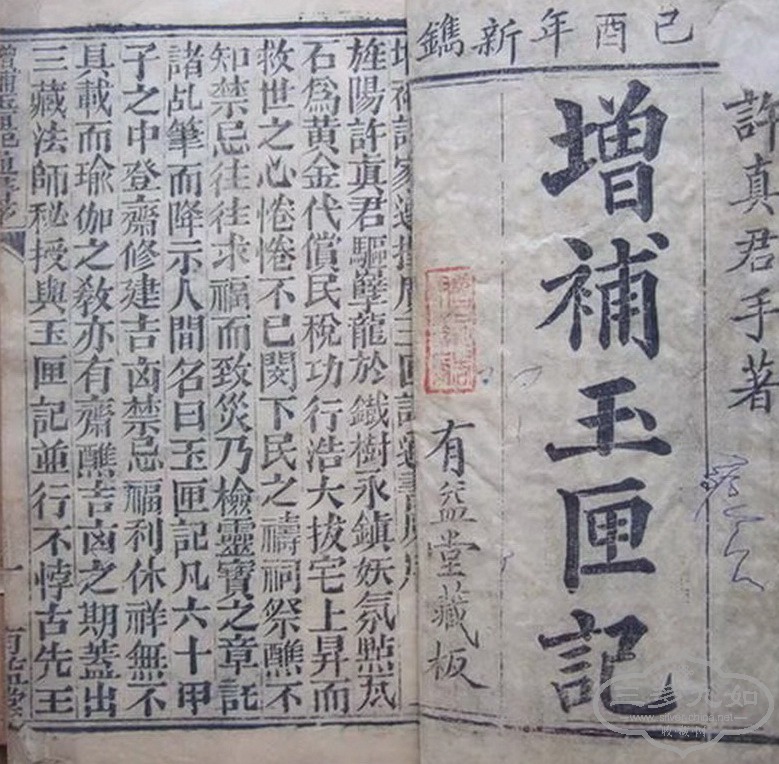 己酉年新鐫
許真君手著
增補玉匣記
有益堂藏板
旌陽許真君驅孽龍於鐵樹永鎮妖氛點瓦
石爲黃金代償民稅功行浩大拔宅上昇而
救世之心惓惓不已閔下民之禱祠祭醮不
知禁忌往往求福而致災乃檢靈寶之章託
諸乩筆而降示人間名曰玉匣記凡六十甲
子之中登齋修建吉凶禁忌福利休祥無不
具載而瑜伽之教亦有齋醮吉凶之期蓋出
三藏法師秘授與玉匣記並行不悖古先王
一
三多九如
www.silvercoinchina.net
收藏网